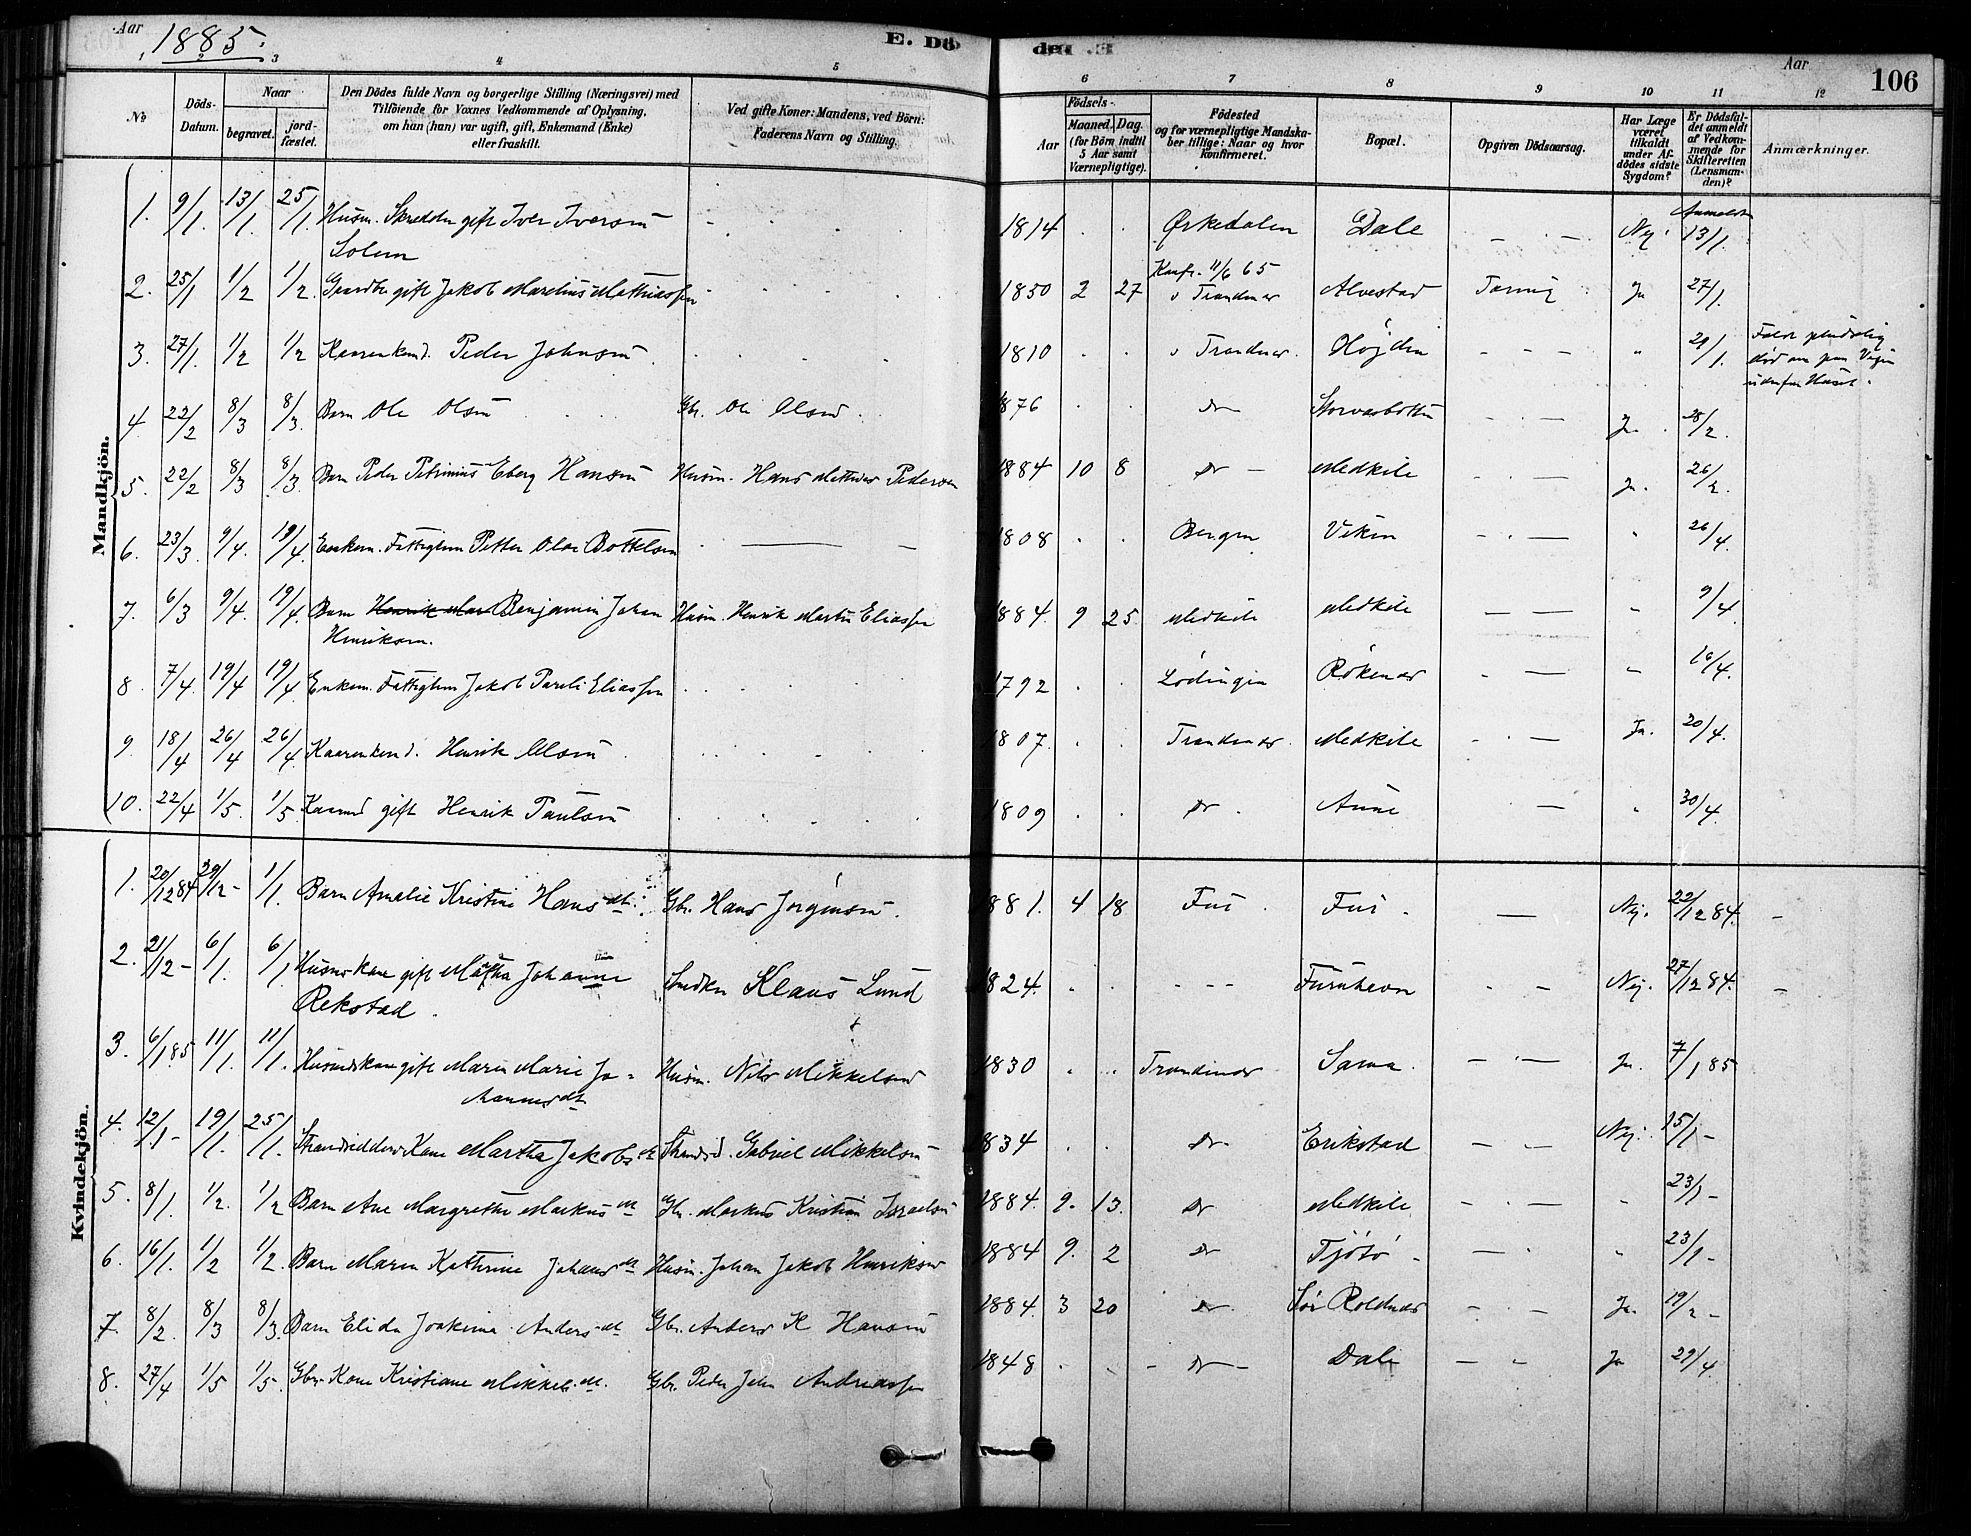 Aar 1885.
E. Döde
Aar
106
1 2 3 4 5 6 7 8 9 10 11 12
№ Döds-Datum. Naar begravet. jordfæstet. Den Dödes fulde Navn og borgerlige Stilling (Næringsvei) med Tilföiende for Voxnes Vedkommende af Oplysning, om han (hun) var ugift, gift, Enkemand (Enke) eller fraskilt. Ved gifte Koner: Mandens, ved Börn: Faderens Navn og Stilling. Födsels- Aar Maaned. Dag. (for Börn indtil 5 Aar samt Værnepligtige). Födested og for værnepligtige Mandskaber tillige: Naar og hvor konfirmeret. Bopæl. Opgiven Dödsaarsag. Har Læge været tilkaldt under Afdödes sidste Sygdom? Er Dödsfaldet anmeldt af Vedkommende for Skifteretten (Lensmanden)? Anmærkninger.
Mandkjön.
1. 9/1. 13/1 25/1. Husm. Skrædder gift Iver Iversen Solem 1814 Ørkedalen Dale Nej. Anmeldt 13/1.
2. 25/1 1/2 1/2. Gaardbr gift Jakob Marelius Mathiassen 1850 2 27 Konfr. 11/6 65 Trondenæs Alvestad Tæring Ja 27/1.
3. 27/1. 1/2 1/2 Kaarenkmd. Peder Johnsen 1810 Trondenæs. Højden " 29/1. Faldt pludselig død om paa Vejen udenfor Huset.
4 22/2 8/3 8/3. Barn Ole Olsen Gbr. Ole Olsen. 1876 Do Storvasbotten Ja. 28/2.
5. 22/2 8/3 8/3. Barn Peder Petrinius Eberg Hansen Husm. Hans Mathias Pedersen 1884 10 8 Do Medkile Ja. 26/2.
6. 23/3. 9/4. 19/4. Enkem. Fattiglem Petter Olai Bottelsen 1808 Bergen Viken " 26/4.
7. 6/3 9/4. 19/4. Barn Benjamin Johan Henriksen. Husm. Henrik Martin Eliassen 1884. 9 25. Medkile Medkile " 9/4
8 7/4. 19/4 19/4. Enkem. Fattiglem Jakob Eliassen 1792 Lødingen Røkenæs " 16/4.
9 18/4 26/4 26/4. Kaarenkmd. Henrik Olsen 1807. Trondenæs. Medkile Ja. 20/4.
10. 22/4 1/5. 1/5. Kaarmd gift Henrik Paulsen 1809 Do. Aune " 30/4.
Kvindekjön.
1. 20/12 84 29/12 1/1. Barn Amalie Kristine Hansdtr. Gbr. Hans Jørgensen. 1881. 4 18 Fus. Fus. Nej. 22/12 84.
2. 21/12 6/1. 6/1. Husmdskone gift Martha Johanna Rekstad. Snedker Klaus Lund 1824. Furuheim Nej. 27/12 84.
3. 6/1 85 11/1. 11/1. Husmdskone gift Maren Marie Johannesdtr. Husm. Nils Mikkelsen 1830 Trondenæs Sama. Ja. 7/1 85
4. 12/1 19/1. 25/1. Strandsidders Kone Martha Jakobsdtr Strands. Gabriel Mikkelsen 1834 Do Erikstad Nej. 15/1
5. 8/1. 1/2. 1/2 Barn Ane Margrethe Markusdtr Gbr. Markus Kristian Israelsen 1884. 9. 13. Do Medkile " 23/1
6. 16/1. 1/2 1/2. Barn Maren Kathrine Johansdtr Husm. Johan Jakob Henriksen 1884 9. 2 Do Tjøtø " 23/1
7. 8/2. 8/3 8/3. Barn Elida Joakima Andersdtr Gbr. Anders K Hansen 1884. 3 20 Do Sør Roldnæs Ja. 19/2
8. 27/4 1/5 1/5. Gbr. Kone Kristiane Mikkelsdtr. Gbr. Peder John Andreassen 1848 Do Dale Ja 29/4.